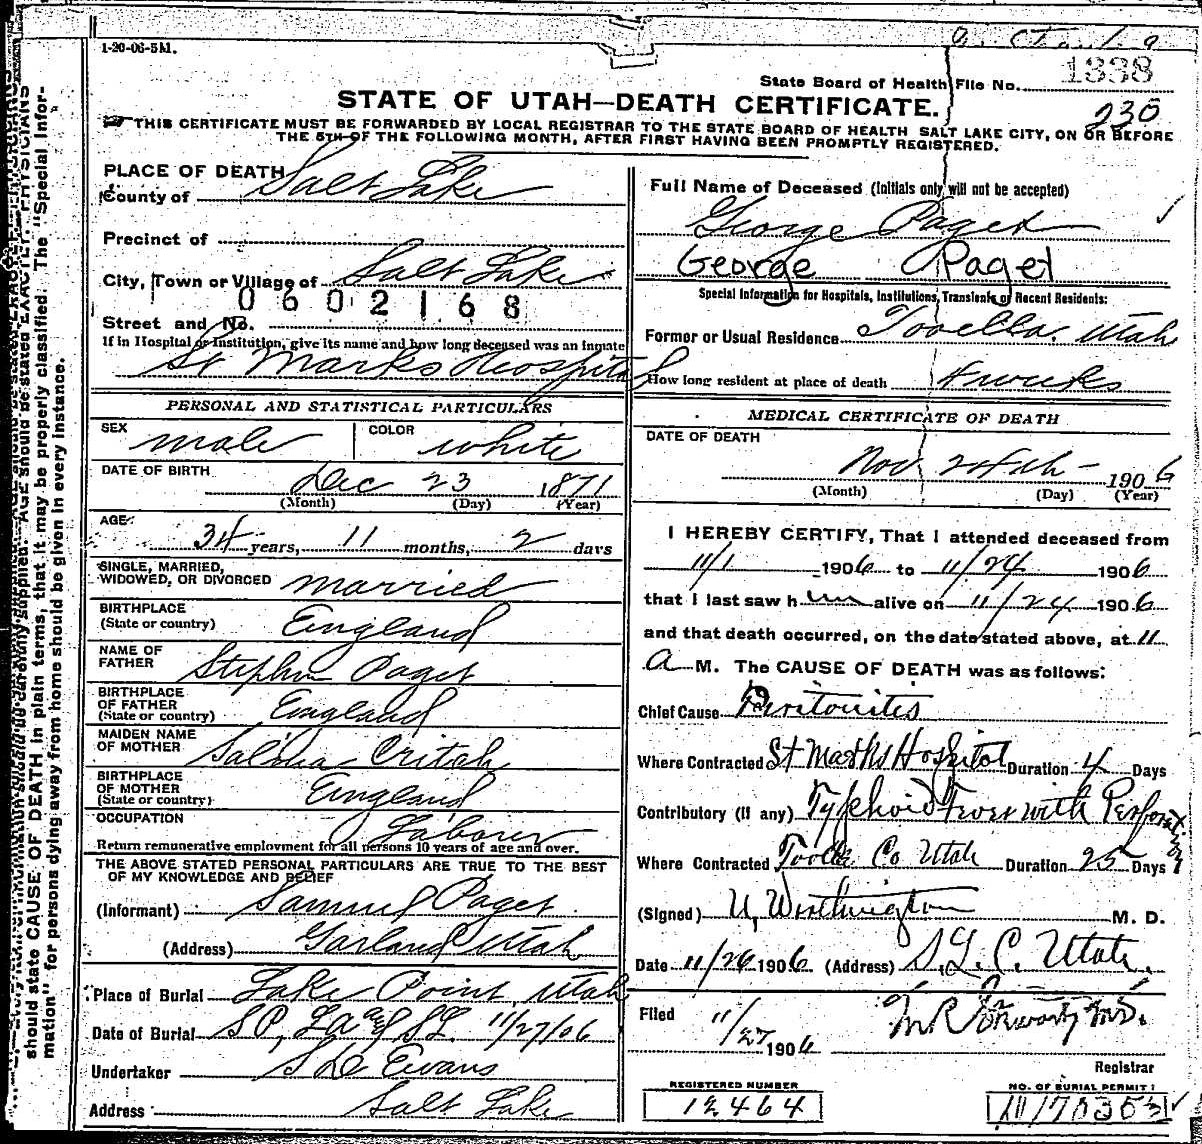 1-20-06-5M.
State Board of Health File No. 1338
230
STATE OF UTAH—DEATH CERTIFICATE.
THIS CERTIFICATE MUST BE FORWARDED BY LOCAL REGISTRAR TO THE STATE BOARD OF HEALTH SALT LAKE CITY, ON OR BEFORE
THE 5TH OF THE FOLLOWING MONTH, AFTER FIRST HAVING BEEN PROMPTLY REGISTERED.
PLACE OF DEATH
County of Salt Lake
Precinct of
City, Town or Village of Salt Lake
0602168
Street and No.
If in Hospital or Institution, give its name and how long deceased was an inmate
St Marks Hospital
PERSONAL AND STATISTICAL PARTICULARS
SEX male COLOR white
DATE OF BIRTH Dec 23 1871
(Month) (Day) (Year)
AGE 34 years, 11 months, 2 days
SINGLE, MARRIED,
WIDOWED, OR DIVORCED married
BIRTHPLACE
(State or country) England
NAME OF
FATHER Stephen Paget
BIRTHPLACE
OF FATHER
(State or country) England
MAIDEN NAME
OF MOTHER
BIRTHPLACE
OF MOTHER
(State or country) England
OCCUPATION Laborer
Return remunerative employment for all persons 10 years of age and over.
THE ABOVE STATED PERSONAL PARTICULARS ARE TRUE TO THE BEST
OF MY KNOWLEDGE AND BELIEF
(Informant) Samuel Paget
(Address) Garland Utah
Place of Burial Lake Point, Utah
Date of Burial 11/27/06
Undertaker Evans
Address Salt Lake
Full Name of Deceased (Initials only will not be accepted)
George Paget
George Paget
Special Information for Hospitals, Institutions, Transients or Recent Residents:
Former or Usual Residence Tooella. Utah
How long resident at place of death 4 weeks
MEDICAL CERTIFICATE OF DEATH
DATE OF DEATH
Nov 24th 1906
(Month) (Day) (Year)
I HEREBY CERTIFY, That I attended deceased from
11/1 1906 to 11/24 1906
that I last saw him alive on 11/24 1906
and that death occurred, on the date stated above, at 11
a M. The CAUSE OF DEATH was as follows:
Chief Cause Peritonitis
Where Contracted St Marks Hospital Duration 4 Days
Contributory (if any) Typhoid Fever with Perforation
Where Contracted Tooele Co Utah Duration 25 Days
(Signed) Worthington M. D.
Date 11/26 1906 (Address) S.L.C. Utah.
Filed 11/27 1906
Registrar
REGISTERED NUMBER
12464
NO. OF BURIAL PERMIT
should state CAUSE OF DEATH in plain terms, that it may be properly classified. The "Special Infor-
mation" for persons dying away from home should be given in every instance.